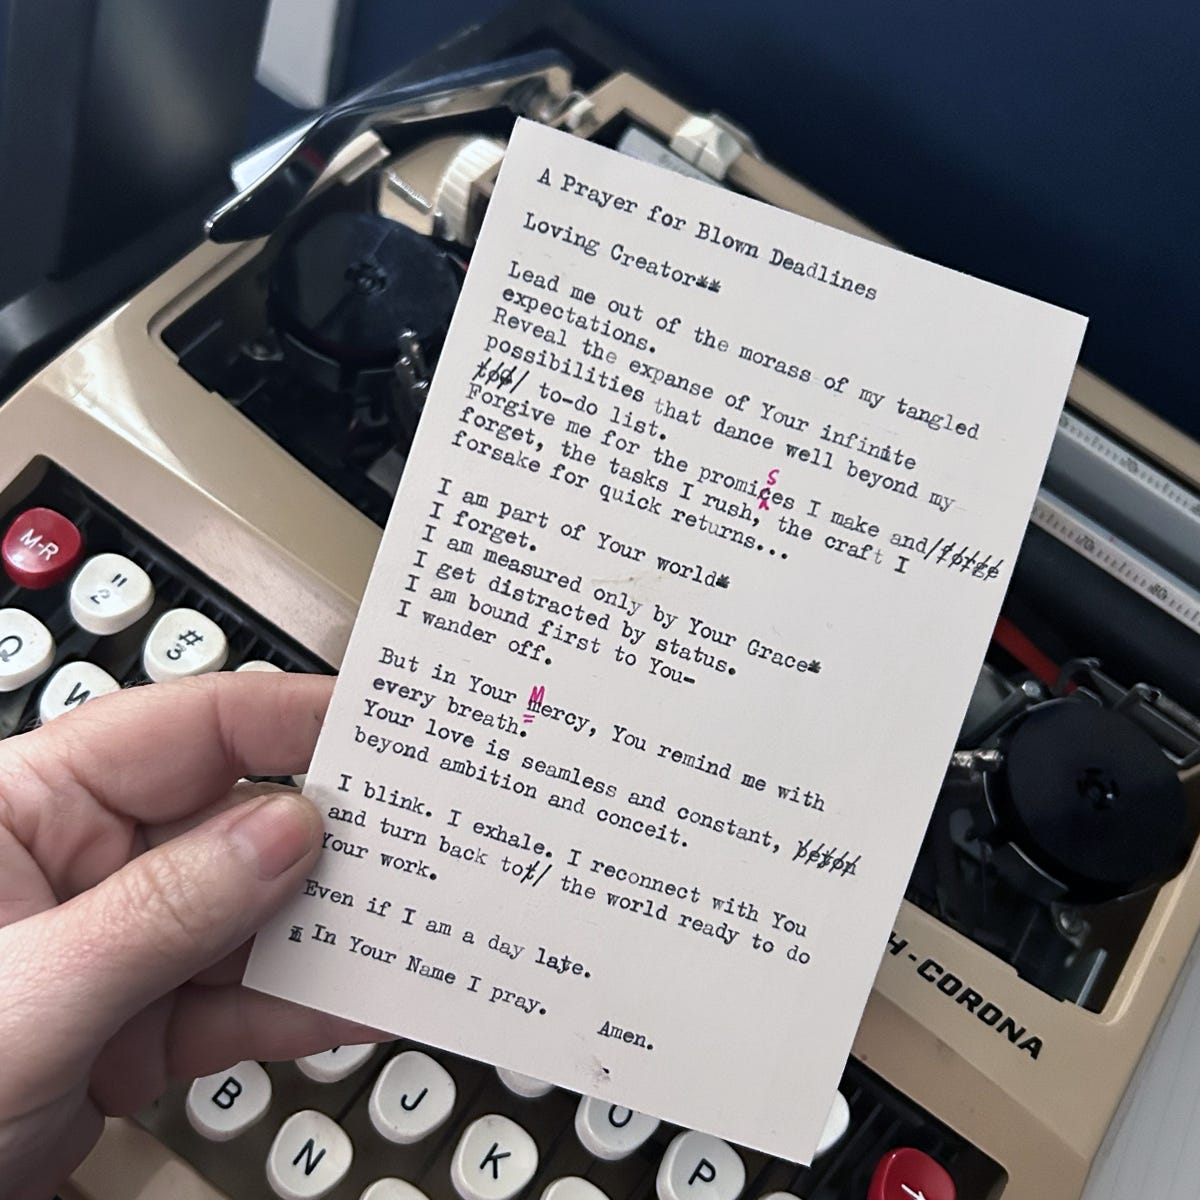 A Prayer for Blown Deadlines
Loving Creator**
Lead me out of the morass of my tangled
expectations.
Reveal the expanse of Your infinite
possibilities that dance well beyond my
to-do list.
Forgive me for the promises I make and
forget, the tasks I rush, the craft I
forsake for quick returns...
I am part of Your world*
I forget.
I am measured only by Your Grace*
I get distracted by status.
I am bound first to You-
I wander off.
But in Your Mercy, You remind me with
every breath.
Your love is seamless and constant,
beyond ambition and conceit.
I blink. I exhale. I reconnect with You
and turn back to the world ready to do
Your work.
Even if I am a day late.
In Your Name I pray.
Amen.
H-CORONA
M-R
"
2
#
3
Q
W
B
J
N
K
O
P